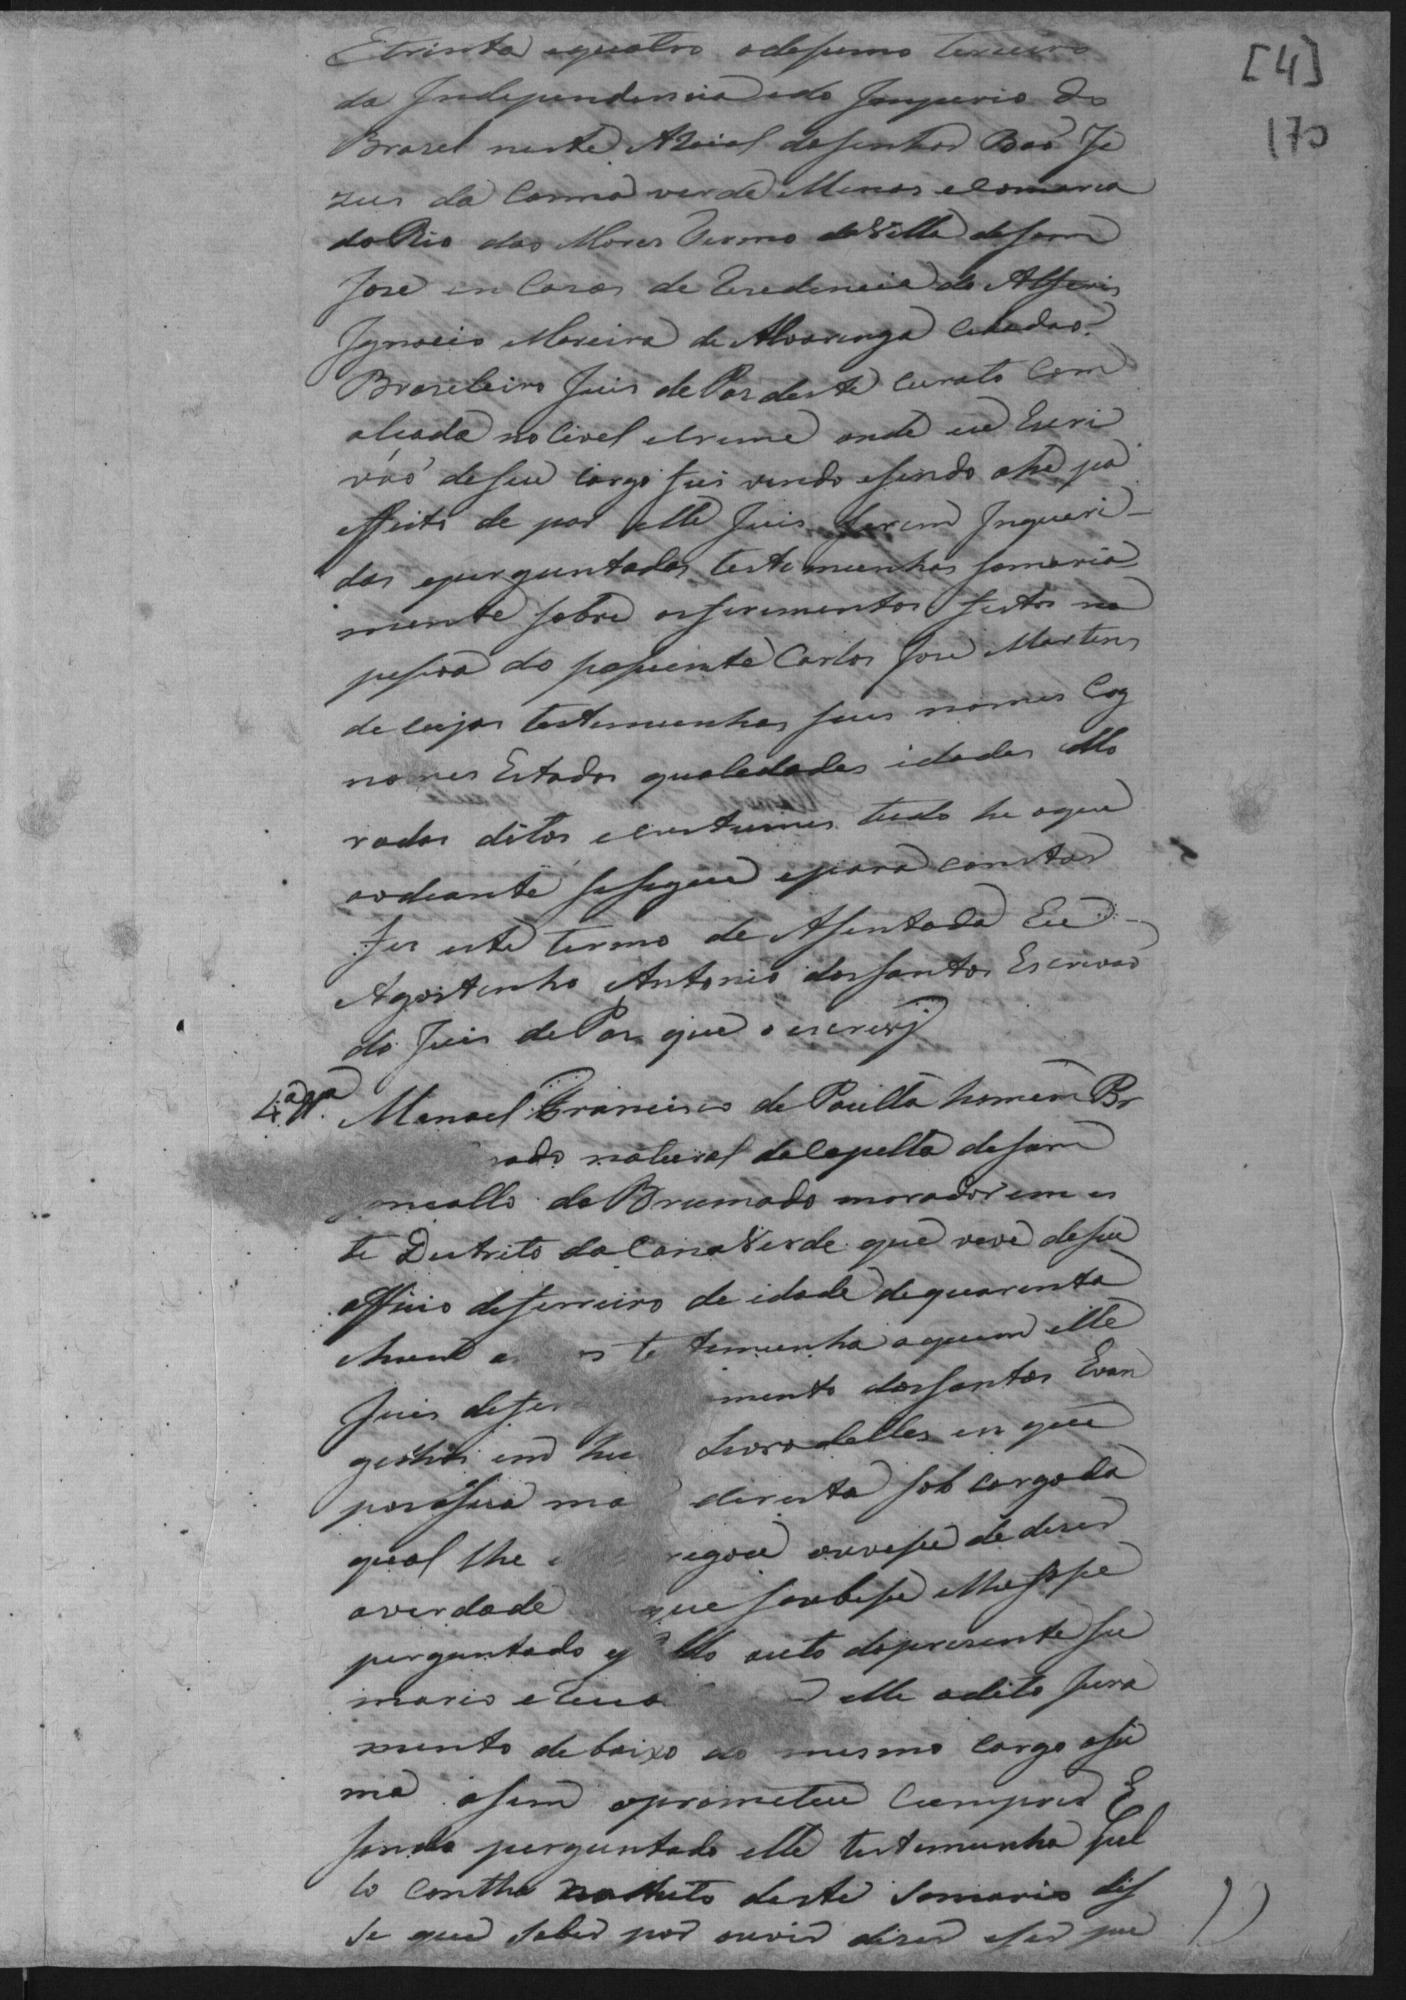 [4]
170
Etrinta equatro edesimo terceiro
da Independencia edo Imperio do
Brazel neste ARaial desenhor Bao Je
zus da Canna verde Minas eComarca
do Rio das Mores Termo da Villa desam
Jose em Cazas de Rezedencia do Alferis
Ignacio Moreira de Alvarenga Cidadao
Brazileiro Juis de Pas deste Curato Com
alsada no Civel eCrime onde eu Escri
vão deseu Cargo fui vindo esendo ahe pa
effeito de por elle Juis serem Inqueri-
das eperguntadas testemunhas somaria
mente sobre osferimentos feitos na
pesoa do pasiente Carlos Jose Martins
de cujas testemunhas seus nomes Cog
nomes Estados qualedades idades Mo
radas ditos ecustumes tudo he oque
aodeante sesegue epara constar
fis este termo de Asentada Eu
Agostinho Antonio dossantos Escrivão
do Juis de Pas que o escrevj
4.ª tª. Manoel Francisco de Paulla homem Br
natural da Capella desam
do Brumado morador em es
te Destrito da Cana Verde que veve deseu
officio deferreiro de idade dequarenta
temunha aquem elle
Juis mento dossantos Evan
gelhos em hu Livro delles em que
pos asua ma direita sob cargo da
qual lhe regou ouvese de dizer
averdade que soubese elhe fose
perguntado auto dopresente su
mario elle odito jura
mento debaixo do mesmo cargo asi
ma asim oprometeu Cumprir E
sendo perguntado elle testemunha pel
lo contheudo no Auto deste Somario dis
se que saber por ouvir dizer eser pu